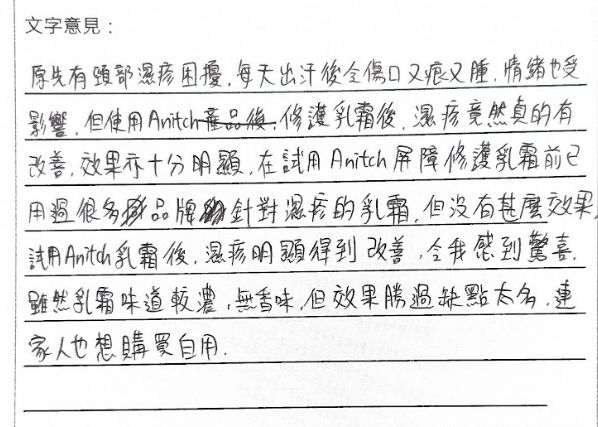 文字意見：
原先有頸部濕疹困擾，每天出汗後令傷口又痕又腫，情緒也受
影響，但使用Anitch修護乳霜後，濕疹竟然真的有
改善，效果亦十分明顯，在試用Anitch屏障修護乳霜前已
用過很多品牌針對濕疹的乳霜，但沒有甚麼效果，
試用Anitch乳霜後，濕疹明顯得到改善，令我感到驚喜，
雖然乳霜味道較濃，無香味，但效果勝過缺點太多，連
家人也想購買自用．